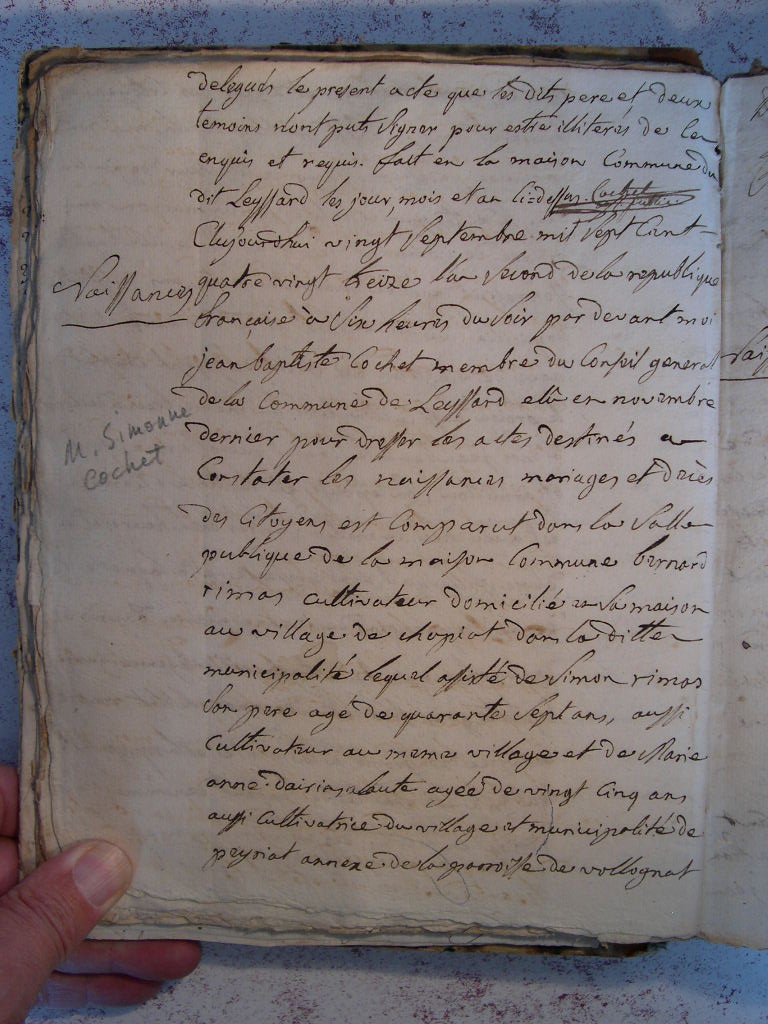 delegués le present acte que les dits pere et deux
temoins n'ont puts signer pour estre illiterés de ce
enquis et requis. fait en la maison Commune du
dit Leyssard les jour, mois et an Ci-dessus. Cochet
aujourdhui vingt Septembre mil Sept Cent
Naissances
quatre vingt treize l'an second de la republique
française à Six heures du soir par devant moi
jean baptiste Cochet membre du Conseil general
de la Commune de Leyssard elû en novembre
dernier pour dresser les actes destinés a
M. Simonne
Cochet
Constater les naissances mariages et décès
des Citoyens est Comparut dans la Salle
publique de la maison Commune bernard
rimas cultivateur domicilié en sa maison
au village de chapiat dans la ditte
municipalité lequel assisté de Simon rimas
Son pere agé de quarante Sept ans, aussi
Cultivateur au meme village et de Marie
anne agée de vingt Cinq ans
aussi Cultivatrice du village et municipalité de
peyriat annexe de la paroisse de vollognat